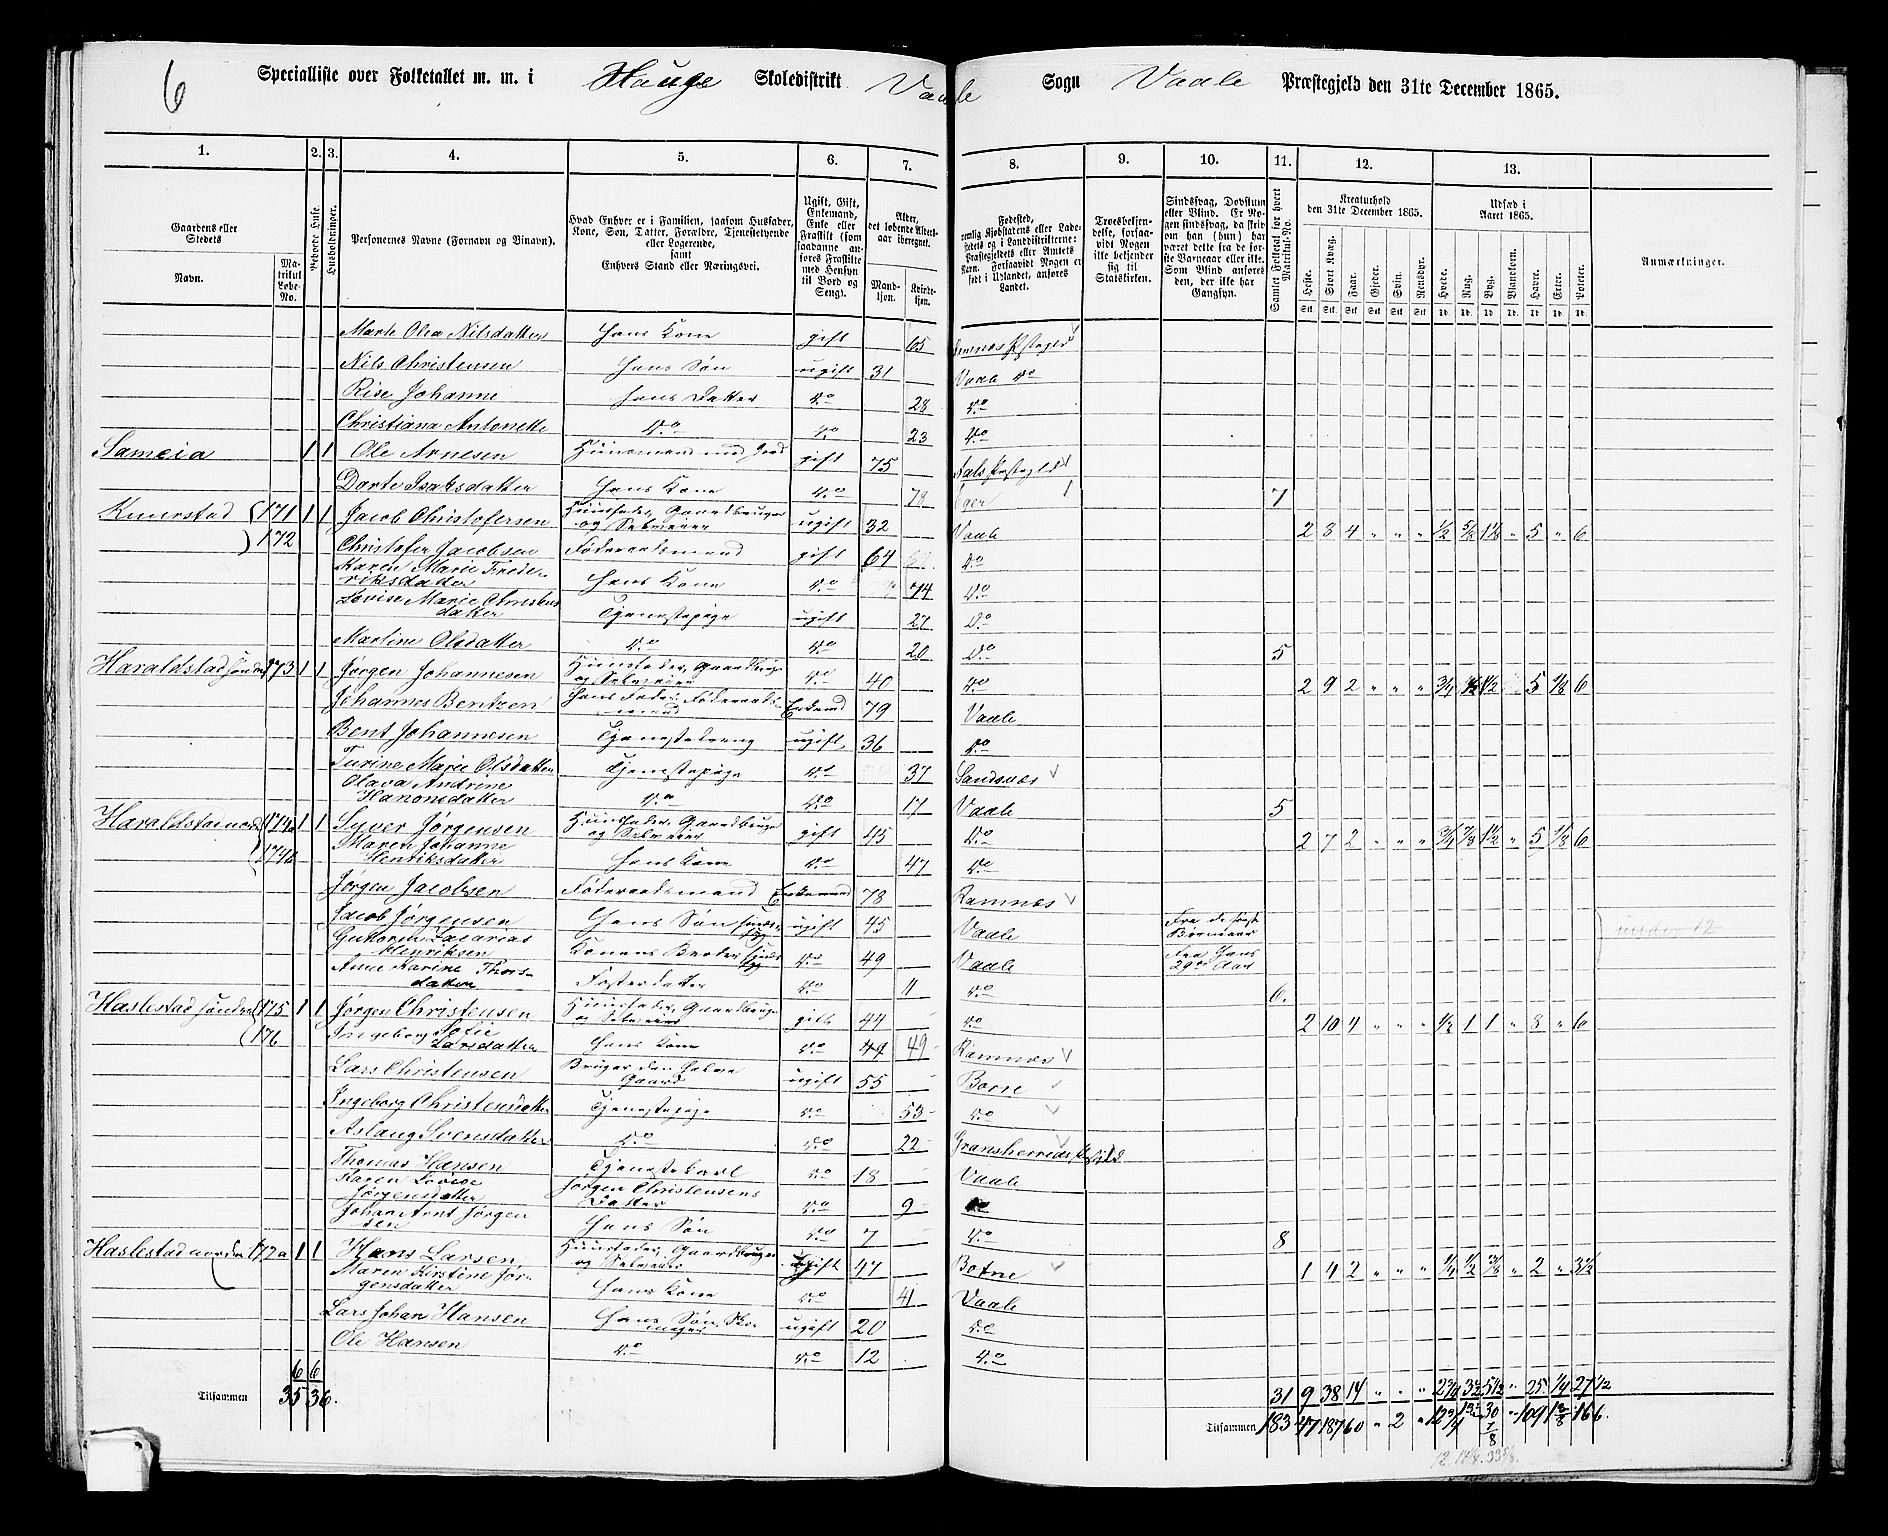 6
Specialliste over Folketallet m. m. i Hauge Skoledistrikt Vaale Sogn Vaale Præstegjeld den 31te December 1865.
1. 2. 3. 4. 5. 6. 7. 8. 9. 10. 11. 12. 13.
Gaardens eller Stedets
Navn.
Matrikul Løbe-No.
Beboede Huse.
Husholdninger.
Personernes Navne (Fornavn og Binavn).
Hvad Enhver er i Familien, saasom Husfader, Kone, Søn, Datter, Forældre, Tjenestetyende eller Logerende, samt Enhvers Stand eller Næringsvei.
Ugift, Gift, Enkemand, Enke eller Fraskilt (som saadanne anføres Fraskilte med Hensyn til Bord og Seng).
Alder, det løbende Alders-aar iberegnet.
Mandkjøn.
Kvindekjøn.
Fødested,
Troesbekjendelse, forsaavidt Nogen ikke bekjender sig til Statskirken.
Sindssvag, Døvstum eller Blind. Er Nogen sindssvag, da skrives om han (hun) har været dette fra de første Barneaar eller ikke. Som Blind anføres den, der ikke har Gangsyn.
Samlet Folketal for hvert Matrikul-No.
Kreaturhold den 31te December 1865.
Heste. Stort Kvæg. Faar. Gjeder. Svin. Rensdyr.
Udsæd i Aaret 1865.
Hvede. Rug. Byg. Blandkorn. Havre. Erter. Poteter.
Anmærkninger.
Marte Olea Nilsdatter hans Kone gift 65
Nils Christensen hans Søn ugift 31
Rise Johanne hans Datter do 28 do
Christiana Antonette do do 23 do
Sameia 1 1 Ole Arnesen gift 75
Dorte Isaksdatter hans Kone do 78 Eger 7
Knurstad 171 1 1 Jacob Christofersen Huusfader, Gaardbruger og Selveier ugift 32 Vaale 2 8 4 " " " 5 " 6
172 Christofer Jacobsen Føderaadsmand gift 64 do
Karen Marie Frederiksdatter hans Kone do 74 do
Lovise Marie Tjenestepige ugift 27 do
Martine Olsdatter do do 20 do 5
Haraldstad søndre 173 1 1 Jørgen Johannesen Huusfader, Gaardbruger og Selveier do 40 do 2 9 2 " " " 3/4 1/2 1 1/2 5 1/8 6
Johannes Bentzen hans Fader, Føderaadsmand Enkemd 79 Vaale
Bent Johannesen Tjenestedreng ugift 36 do
Turine Marie Olsdatter Tjenestepige do 37 Sandsvær
Olava Andrine Hanonsdatter do do 17 Vaale 5
Haraldstad nordre 174a 1 1 Syver Jørgensen Huusfader, Gaardbruger og Selveier gift 45 do 2 7 2 " " " 3/4 7/8 1 1/2 " 5 1/8 6
174b Maren Johanne Henriksdatter hans Kone do 47 do
Jørgen Jacobsen Føderaadsmand Enkemand 78 Ramnæs
Jacob Jørgensen hans Søn ugift 45 Vaale Fra de første Barneaar under 12
Guttorm Zacarias Henriksen Konens Broder do 49 Vaale fra hans 29de Aar
Anne Karine Thorsdatter Fosterdatter do 11 do 6.
Haslestad søndre 175 1 1 Jørgen Christensen Huusfader, Gaardbruger og Selveier gift 44 do 2 10 4 " " " 1/2 1 1 " 8 " 6
176 Ingeborg Sofie Larsdatter hans Kone do 49 49 Ramnæs
Lars Christensen Bruger den halve Gaard ugift 55 Borre
Ingeborg Christensdatter Tjenestepige do 53 do
Aslaug Svensdatter do do 22
Thomas Hansen Tjenestekarl do 18 Vaale
Karen Lovise Jørgensdatter Jørgen Christensens Datter do 9 do
Johan Arnt Jørgensen hans Søn do 7 do 8
Haslestad nordre 1 1 Hans Larsen Huusfader, Gaardbruger og Selveier gift 47 Botne 1 4 2 " " " 1/4 1/2 " 2 " 3 1/2
Maren Kirstine Jørgensdatter hans Kone do 41 Vaale
Lars Johan Hansen hans Søn, ugift 20 do
Ole Hansen do do 12 do
6 6
Tilsammen 35 36.
31 9 38 14 " " " 2 3/4 5 1/2 " 25 1/4 27 1/2
Tilsammen 183 47 187 60 " 2 " 12 3/4 30 7/8 " 109 166.